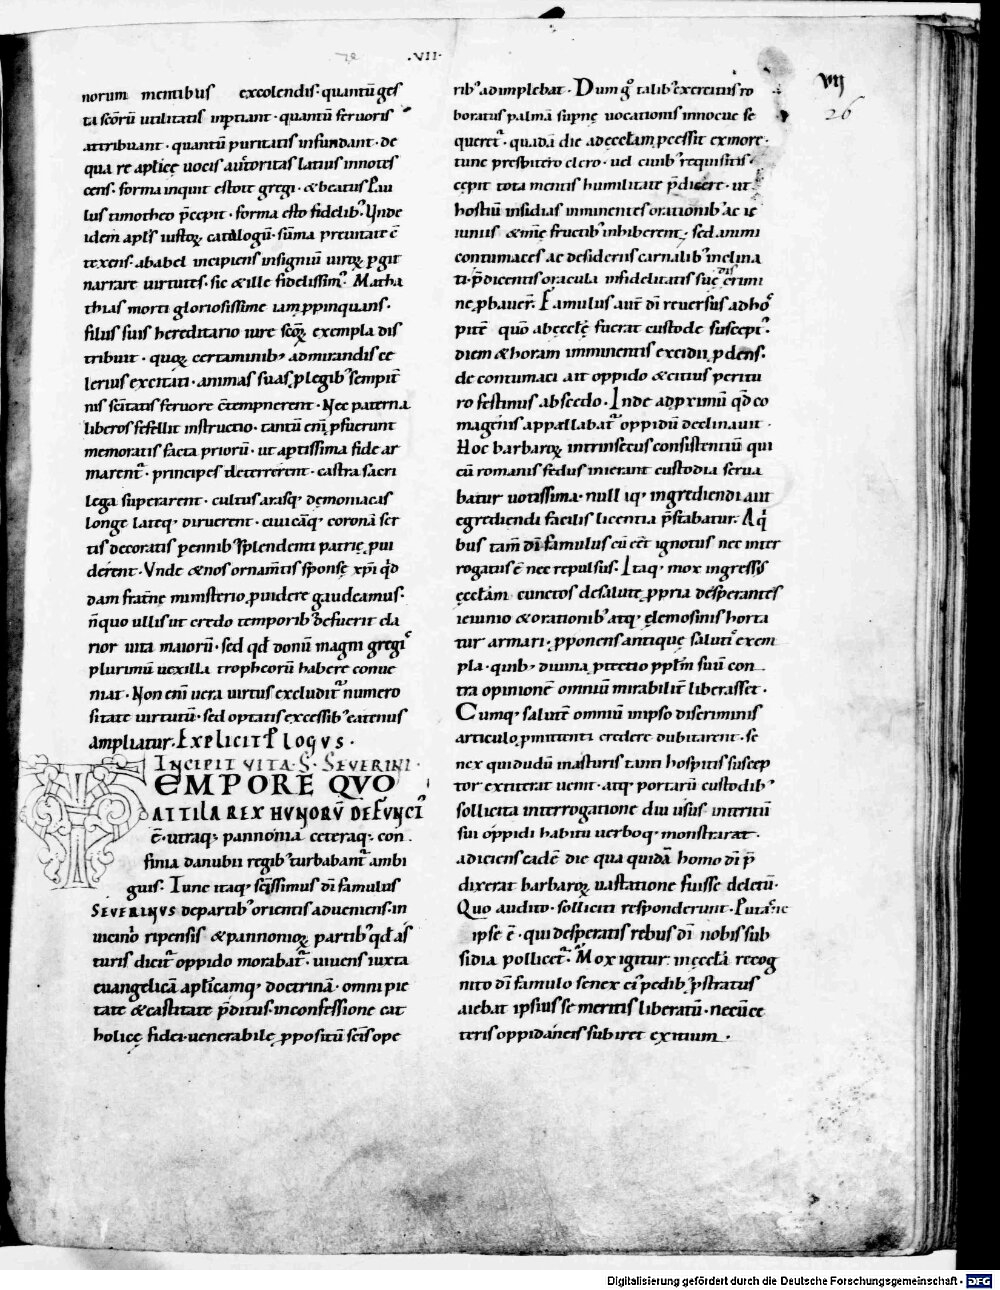 .VII.
VII
26
norum mentibus excolendis. quantũ ges
ta sc̄orũ utilitatis inp̄tiant. quantũ feruoris
attribuant. quantũ puritatis infundant. de
qua re ap̄licę uocis auctoritas latius innotes
cens. forma inquit estote gregi. & beatus Pau
lus timotheo p̄cepit. forma esto fidelib; Unde
idem apl̄s iustoꝝ catalogũ. sũma breuitate c̄
texens. ab abel incipiens insigniũ uiroꝝ p̲git
narrare uirtutes. sic & ille fidelissim᷒. Matha
thias morti gloriosissime iam p̲pinquans.
filiis suis hereditario iure sc̄oꝝ exempla dis
tribuit. quoꝝ certaminib; admirandis ce
lerius excitati. animas suas p̲ legib; sempit̄
nis sc̄itatis feruore c̄tempnerent. Nec paterna
liberos fefellit instructio. tantũ eni p̲fuerunt
memoratis facta priorũ. ut aptissima fide ar
marent᷒. principes deterrerent. castra sacri
lega superarent. cultus arasq; demoniacas
longe lateq; diruerent. ciuicāq; coronā ser
tis decoratis pennib; splendenti patrię, p̲ui
derent. Unde & nos ornam̄tis sponsę xp̄i q̄d
dam frat̄ne ministerio p̲uidere gaudeamus.
n̄ quo ullis ut credo temporib; defuerit cla
rior uita maiorũ. sed qd̄ donũ magni gregi᷒
plurimũ uexilla tropheorũ habere conue
niat. Non eni uera uirtus excludit᷒ numero
sitate uirtutũ. sed optatis excessib; eatenus
ampliatur. EXPLICIT PLOGVS.
INCIPIT VITA. S. SEVERINI.
TEMPORE QVO
ATTILA REX HVNORŨ DEFVNCT᷒
ē. utraq; pannonia ceteraq; con
finia danubii regib; turbabant᷒ ambi
guis. Tunc itaq; sc̄issimus dī famulus
SEVERINVS de partib; orientis adueniens. in
uicino ripensis & pannonioꝝ partib; qd̄ as
turis dicit᷒ oppido morabat᷒. uiuens iuxta
euangelicā apl̄icamq; doctrinā. omni pie
tate & castitate p̄ditus. in confessione cat
holicę fidei. uenerabile p̲positũ sc̄is ope
rib; adimplebat. Dum g̊ talib; exercitiis ro
boratus palmā sup̄nę uocationis innocue se
queret᷒. quadā die ad ęcc̄lam p̲cessit ex more.
tunc presbitero clero. uel ciuib; requisitis.
cępit tota mentis humilitate p̄dicere. ut
hostiũ insidias imminentes orationib; ac ie
iuniis & mīe fructib; inhiberent. sed animi
contumaces ac desideriis carnalib; inclina
ti. p̄dicentis oracula infidelitatis suę discrimi
ne p̲bauer̄. Famulus aut̄ dī reuersus ad ho᷒
pitē quo ab ęcc̄lę fuerat custode suscept᷒.
diem & horam imminentis excidii p̲dens.
de contumaci ait oppido & citius peritu
ro festinus abscedo. Inde ad p̲ximũ qd̄ co
magenis appallabat᷒ oppidũ declinauit.
Hoc barbaroꝝ intrinsecus consistentiũ qui
cũ romanis fędus inierant custodia serua
batur uotissima. nulliq; ingrediendi aut
egrediendi facilis licentia p̄stabatur. A q̇
bus tam̄ dī famulus cũ eēt ignotus nec inter
rogatus ē nec repulsus. Itaq; mox ingressis
ęcc̄lam cunctos de salute p̲pria desperantes
ieiunio & orationib; atq; elemosinis horta
tur armari. p̲ponens antiquę salutis exem
pla. quib; diuina p̲tectio pp̄lm suũ con
tra opinionē omniũ mirabilit̄ liberasset.
Cumq; salutē omniũ in ipso discriminis
articulo p̲mittenti credere dubitarent. se
nex qui dudũ in asturis tanti hospitis suscep
tor extiterat uenit. atq; portarũ custodib;
sollicita interrogatione diu uisus interitũ
sui oppidi habitu uerboq; monstrarat.
adiciens eadē die qua quidā homo dī p̄
dixerat barbaroꝝ uastatione fuisse deletũ.
Quo audito. solliciti responderunt. Putasne
ipse ē. qui desperatis rebus dī nobis sub
sidia pollicet᷒. Mox igitur in ęcc̄la recog
nito dī famulo senex ei᷒ pedib; p̲stratus
aiebat ipsius se meritis liberatũ. ne cũ ce
teris oppidaneis subiret exitium.
Digitalisierung gefördert durch die Deutsche Forschungsgemeinschaft - DFG